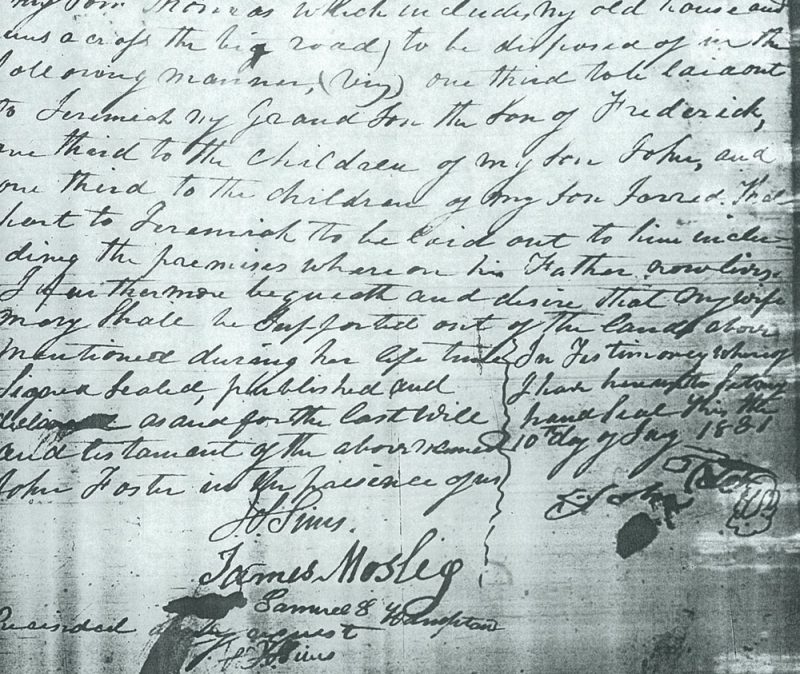 my son Thomas as which includes my old house and
runs across the big road) to be disposed of in the
following manner, (viz) one third to be laid out
to Jeremiah my Grand Son the Son of Frederick,
one third to the children of my Son John, and
one third to the children of my Son Jarred. The
part to Jeremiah to be laid out to him inclu-
ding the premises whereon his Father now lives.
I furthermore bequeath and desire that my wife
mary Shall be Supported out of the lands above
mentioned during her life time
Signed Sealed, published and
as and for the last Will
and testament of the above named
John Foster in the presence of us
In Testimoney whereof
I have hereunto Set my
hand Seal this the
10 day of 1831
John
Sims.
James Moslig
Samuel S Hampton
request
Sims